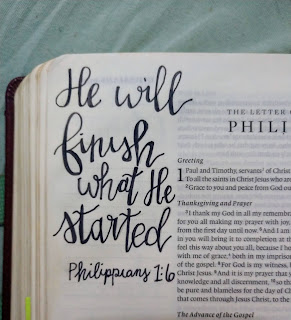 He will
finish
what He
started
Philippians 1:6
THE LETTER O
PHILI
Greeting
1 Paul and Timothy, servants¹ of Christ
To all the saints in Christ Jesus who are
²Grace to you and peace from God ou
Thanksgiving and Prayer
³I thank my God in all my remembra
for you all making my prayer with joy,
from the first day until now. ⁶And I am
in you will bring it to completion at the
feel this way about you all, because I ho
with me of grace, both in my imprison
of the gospel. ⁸For God is my witness, h
Christ Jesus. ⁹And it is my prayer that y
knowledge and all discernment, ¹⁰so th
be pure and blameless for the day of Ch
that comes through Jesus Christ, to the
The Advance of the Gospel